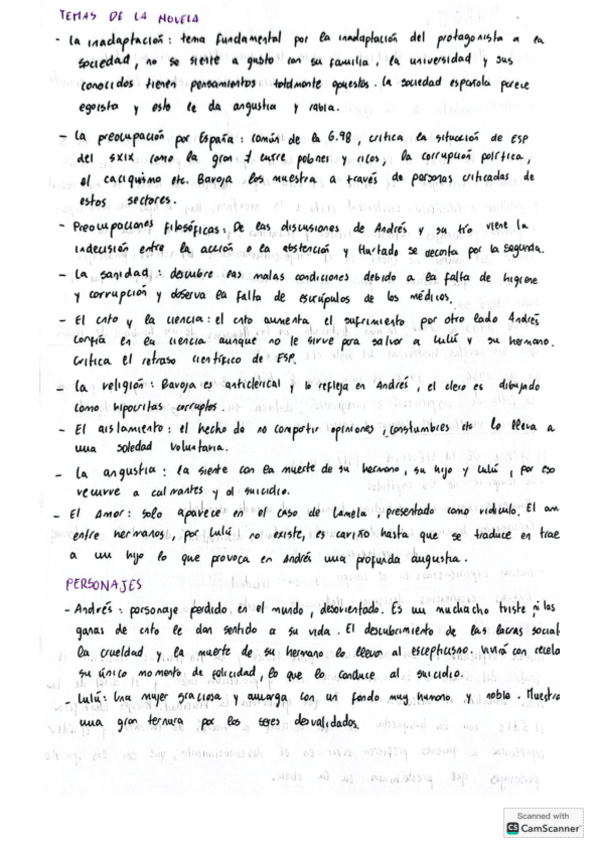 TEMAS DE LA NOVELA
- La inadaptación: tema fundamental por la inadaptación del protagonista a la
sociedad, no se siente a gusto con su familia, la universidad y sus
conocidos tienen pensamientos totalmente opuestos. La sociedad española parece
egoísta y esto le da angustia y rabia.
- La preocupación por España: común de la G.98, critica la situción de ESP
del sXIX como la gran ≠ entre pobres y ricos, la corrupción política,
el caciquismo etc. Baroja los muestra a través de personas criticadas de
estos sectores.
- Preocupaciones filosóficas: De las discusiones de Andrés y su tío viene la
indecisión entre la acción o la abstención y Hurtado se decanta por la segunda.
- La sanidad: descubre las malas condiciones debido a la falta de higiene
y corrupción y observa la falta de escrúpulos de los médicos.
- El cnto y la ciencia: el cnto aumenta el sufrimiento por otro lado Andrés
confía en la ciencia aunque no le sirve para salvar a Lulú y su hermano.
Critica el retraso científico de ESP.
- La religión: Baroja es anticlerical y lo refleja en Andrés, el clero es dibujado
como hipocritas corruptos.
- El aislamiento: el hecho de no compartir opiniones, costumbres etc lo lleva a
una soledad voluntaria.
- La angustia: la siente con la muerte de su hermano, su hijo y Lulú, por eso
recurre a calmantes y al suicidio.
- El Amor: solo aparece en el caso de Lamela, presentado como ridículo. El am
entre hermanos, por Lulú no existe, es cariño hasta que se traduce en trae
a un hijo lo que provoca en Andrés una profunda angustia.
PERSONAJES
- Andrés: personaje perdido en el mundo, desorientado. Es un muchacho triste ni las
ganas de cnto le dan sentido a su vida. El descubrimiento de las lacras social
la crueldad y la muerte de su hermano lo lleva al escepticismo. Vivirá con recelo
su único momento de felicidad, lo que lo conduce al suicidio.
- Lulú: Una mujer graciosa y amarga con un fondo muy humano y noble. Muestra
una gran ternura por los seres desvalidados.
Scanned with
CS CamScanner